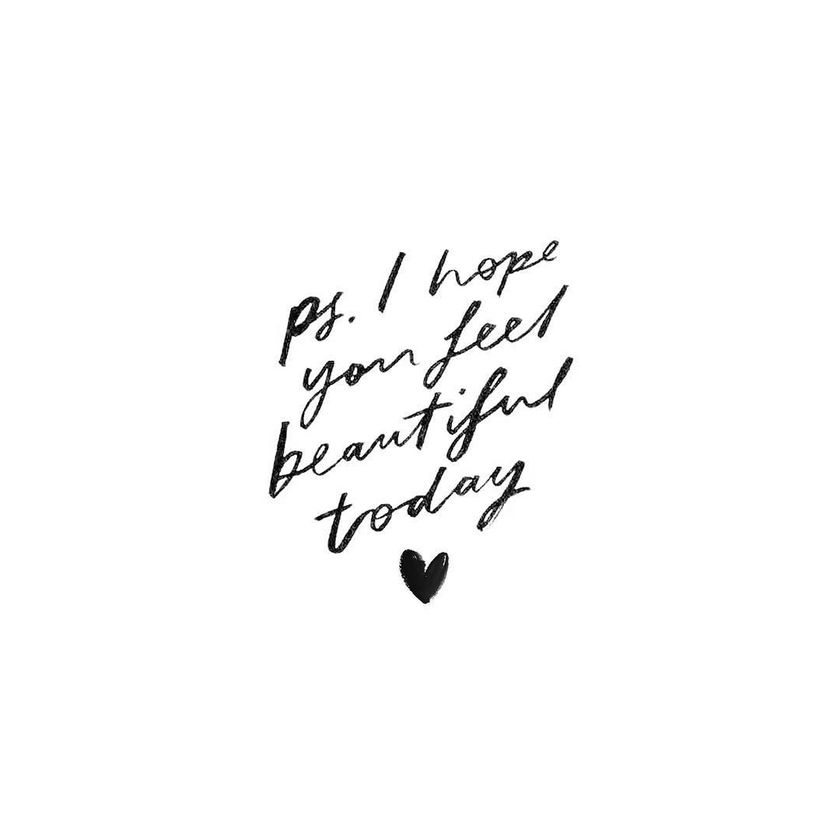 ps. I hope
you feel
beautiful
today